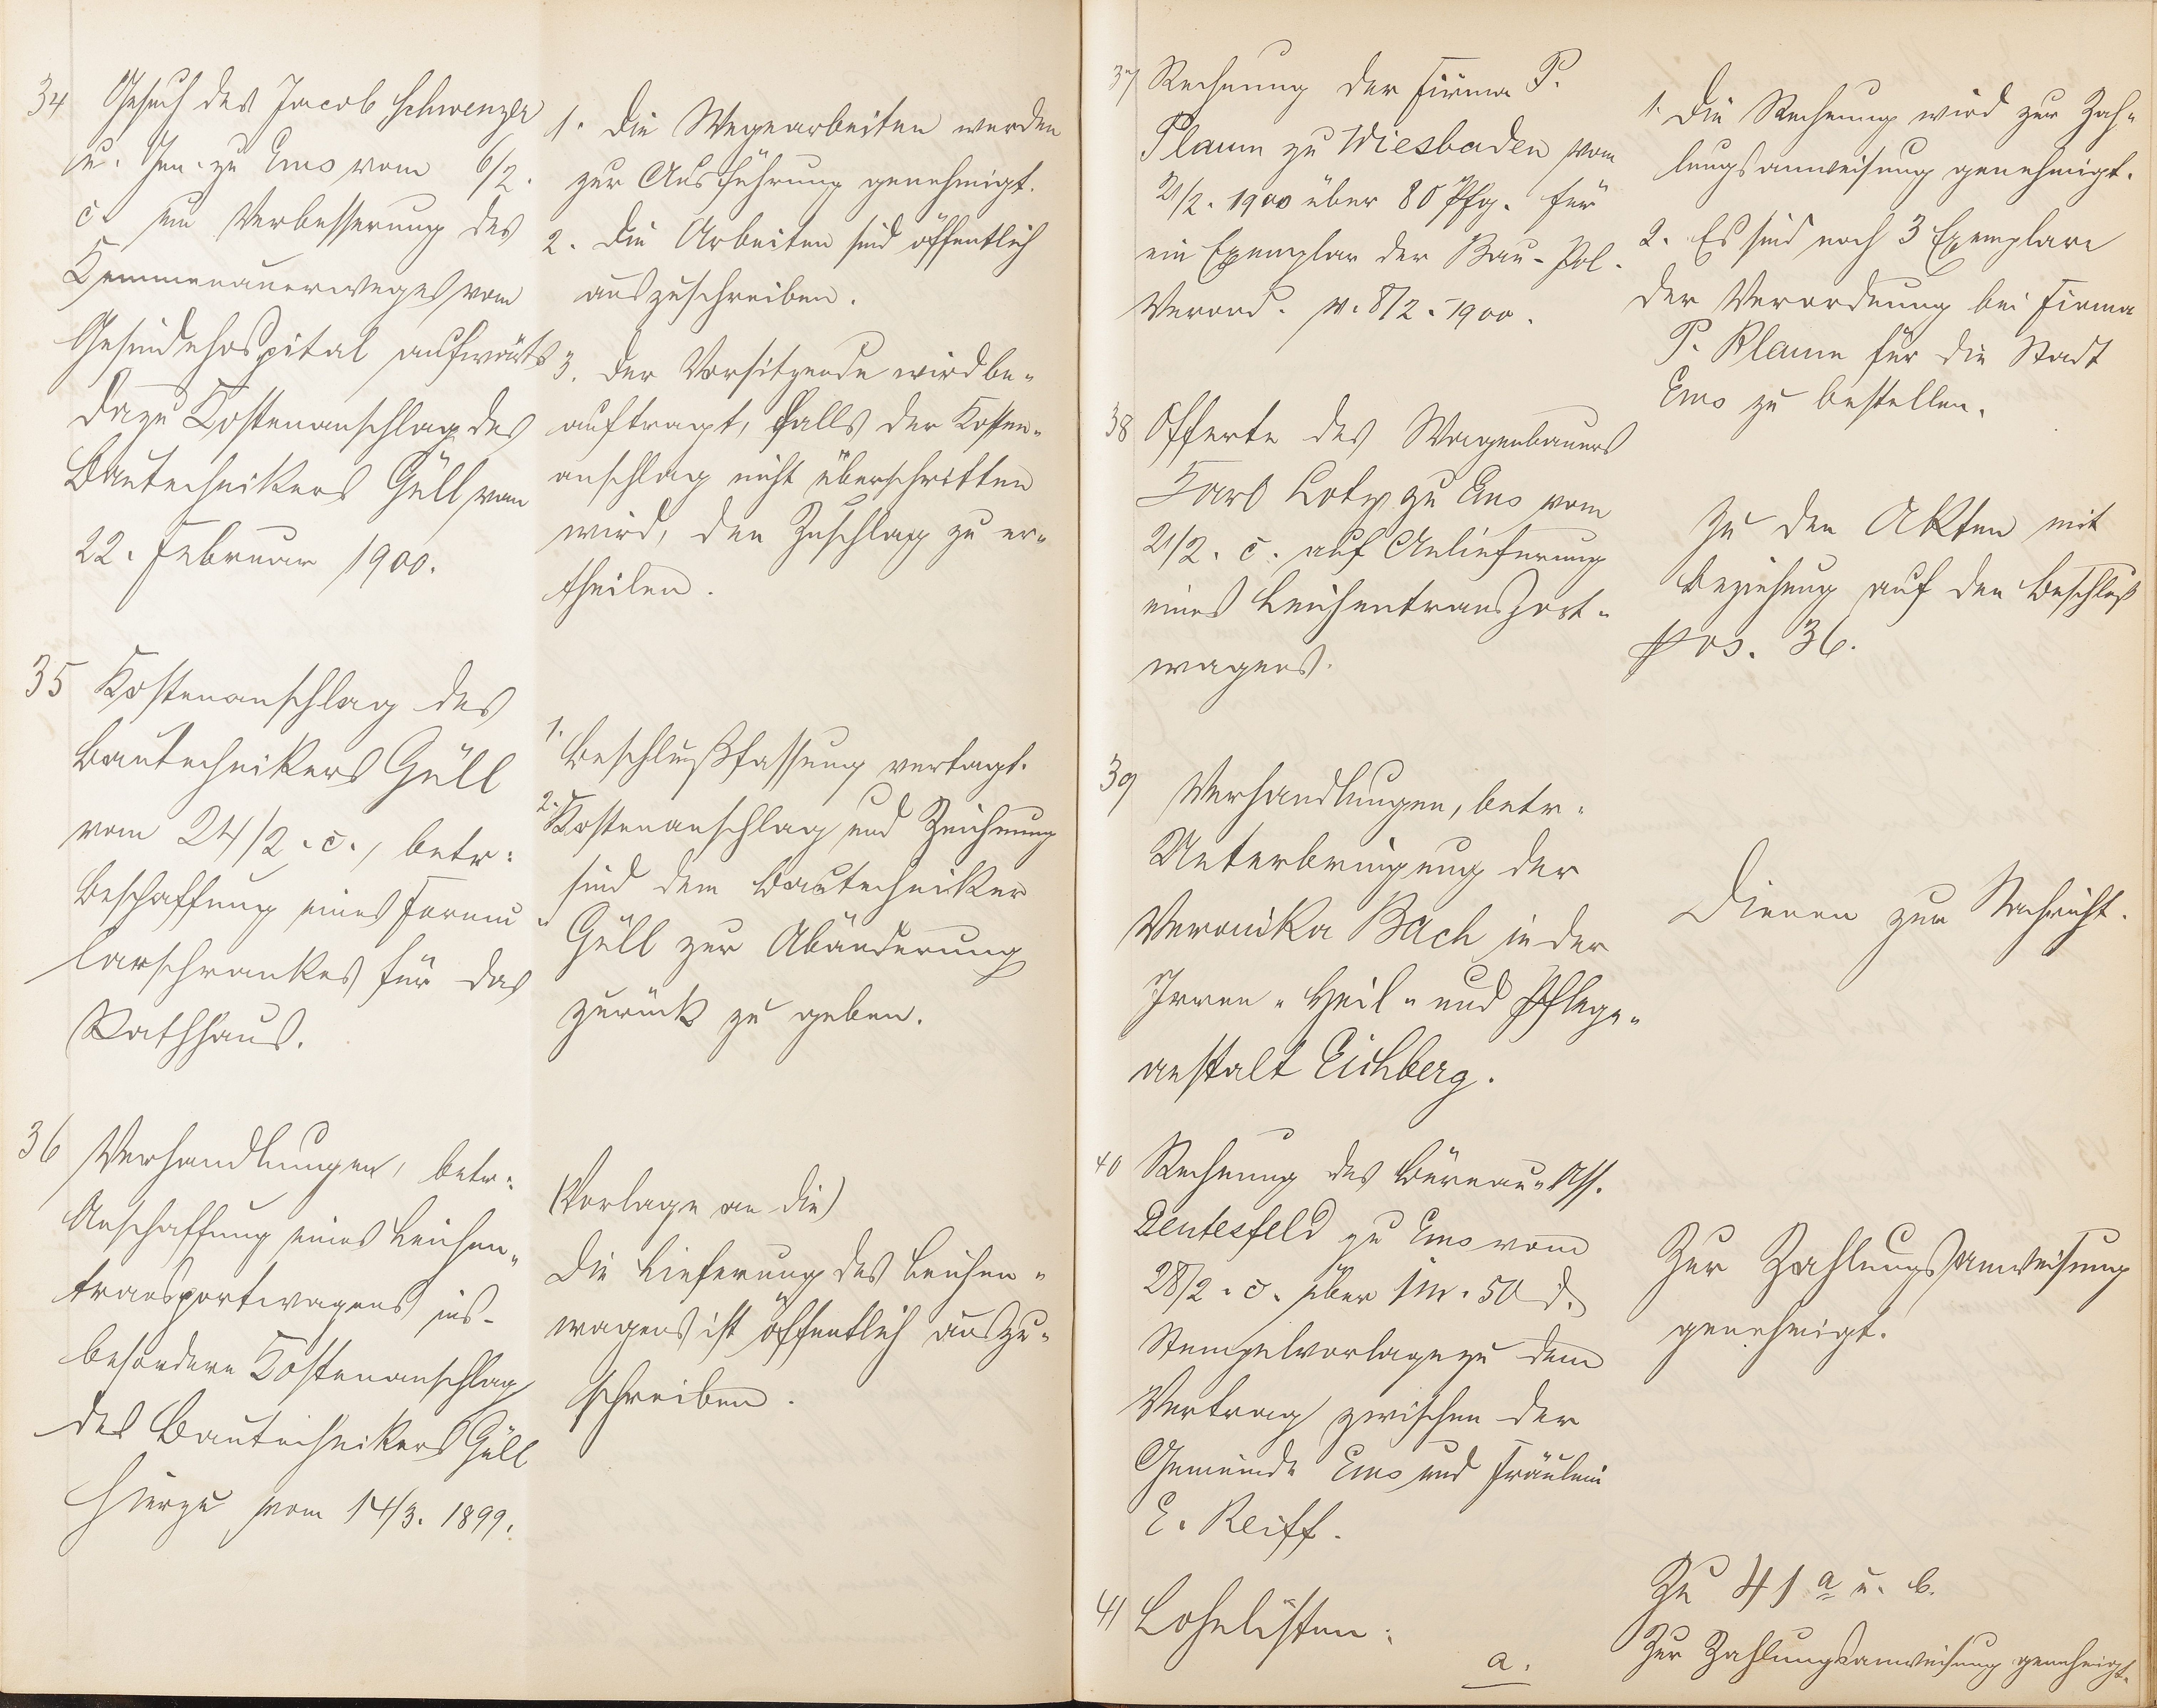 34 Gesuch des Jacob Schwenzer
u. Gen. zu Ems vom 6/2.
c. um Verbesserung des
Kemmenauerweges vom
Gesindehospital aufwärts
dazu Kostenanschlag des
Bautechnikers Güll vom
22. Februar 1900.
1. Die Wegearbeiten werden
zur Ausführung genehmigt.
2. Die Arbeiten sind öffentlich
auszuschreiben.
3. Der Vorsitzende wird be-
auftragt, falls der Kosten-
anschlag nicht überschritten
wird, den Zuschlag zu er-
theilen.
35 Kostenanschlag des
Bautechnikers Güll
vom 24/2. c., betr.
Beschaffung eines Formu-
larschrankes für das
Rathhaus.
1. Beschlußfassung vertagt.
2. Kostenanschlag und Zeichnung
sind dem Bautechniker
Güll zur Abänderung
zurück zu geben.
36 Verhandlungen, betr.
Anschaffung eines Leichen-
transportwagens ins-
besondere Kostenanschlag
des Bautechnikers Güll
hierzu vom 14/3. 1899.
(Vorlage an die)
Die Lieferung des Leichen-
wagens ist öffentlich auszu-
schreiben.
37 Rechnung der Firma P.
Plaum zu Wiesbaden vom
21/2. 1900 über 80 Pfg. für
ein Exemplar der Bau-Pol.
Verord. v. 8/2. 1900.
1. Die Rechnung wird zur Zah-
lungsanweisung genehmigt.
2. Es sind noch 3 Exemplare
der Verordnung bei Firma
P. Plaum für die Stadt
Ems zu bestellen.
38 Offerte des Wagenbauers
Karl Lotz zu Ems vom
21/2. c. auf Anlieferung
eines Leichentransport-
wagens.
Zu den Akten mit
Beziehung auf den Beschluß
pos. 36.
39 Verhandlungen, betr.
Unterbringung der
Veronika Bach in der
Irren-Heil- und Pflege-
anstalt Eichberg.
Dienen zur Nachricht.
40 Rechnung des Büreau-Ass.
Deutesfeld zu Ems vom
28/2. c. über 1 M. 50 d.
Stempelvorlage zu dem
Vertrag zwischen der
Gemeinde Ems und Fräulein
E. Reiff.
Zur Zahlungsanweisung
genehmigt.
41 Lohnlisten:
a.
Zu 41 a u. b.
Zur Zahlungsanweisung genehmigt.